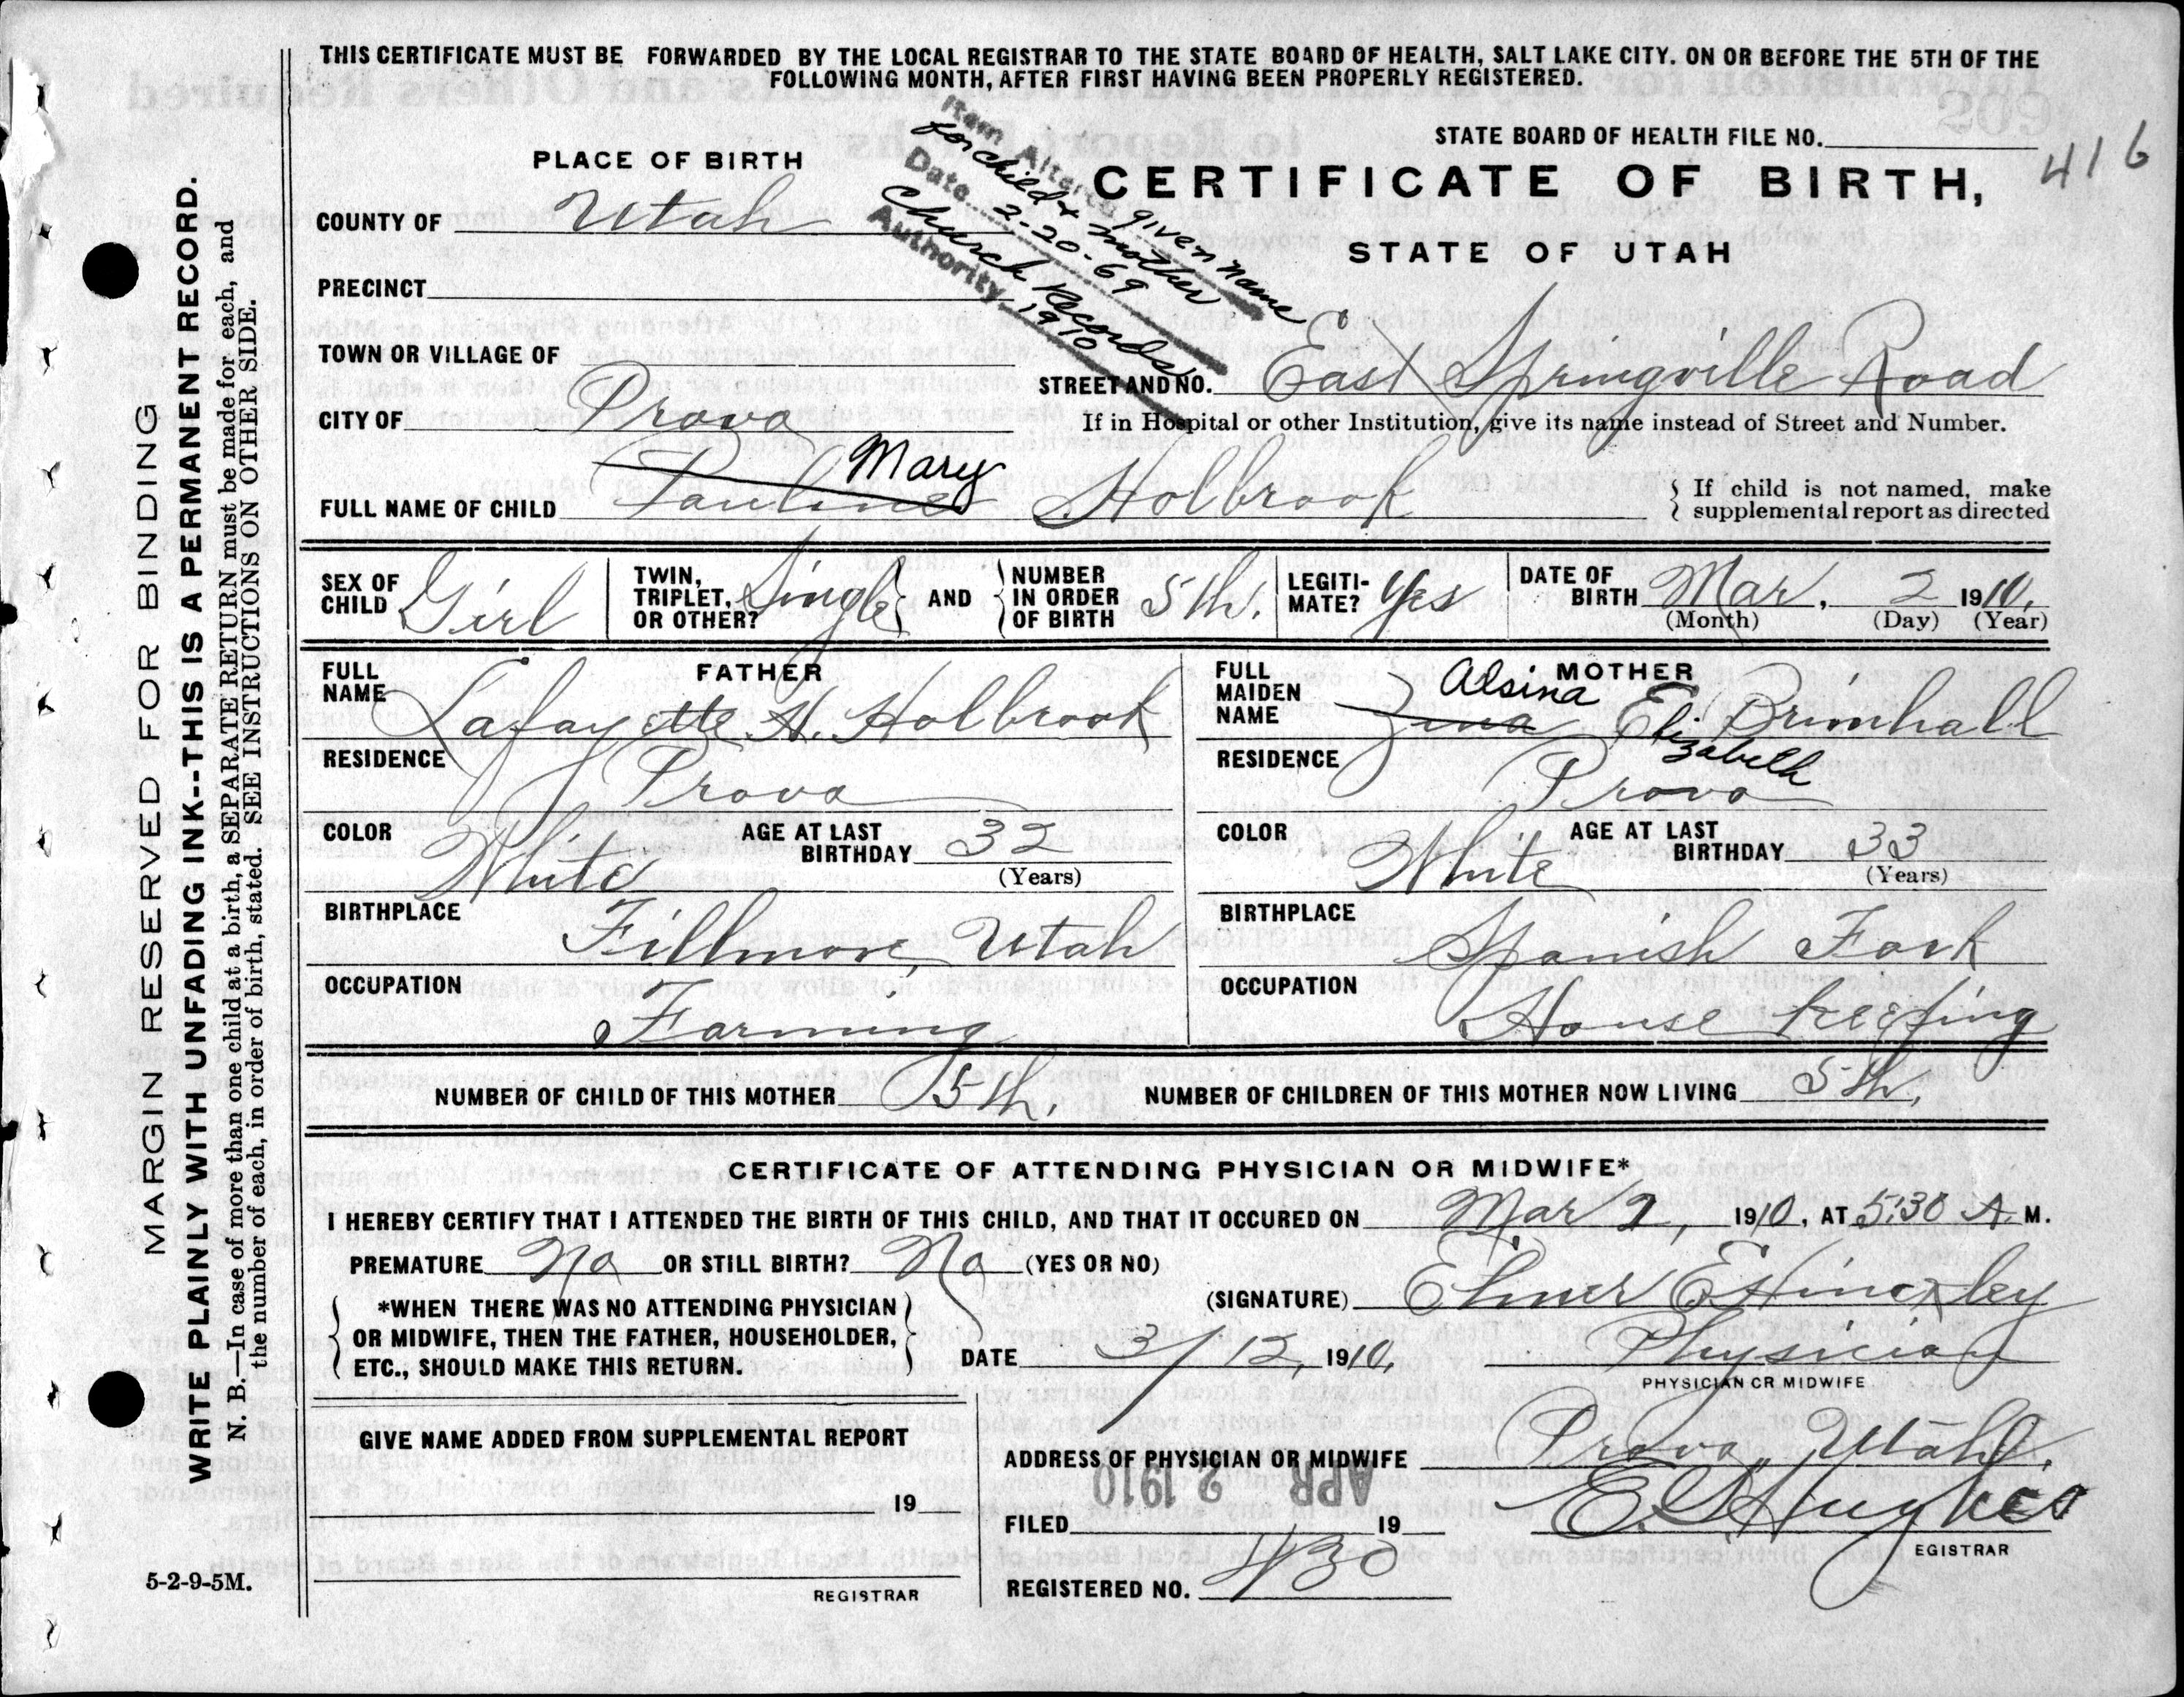 THIS CERTIFICATE MUST BE FORWARDED BY THE LOCAL REGISTRAR TO THE STATE BOARD OF HEALTH, SALT LAKE CITY. ON OR BEFORE THE 5TH OF THE
FOLLOWING MONTH, AFTER FIRST HAVING BEEN PROPERLY REGISTERED.
STATE BOARD OF HEALTH FILE NO. 416
PLACE OF BIRTH
CERTIFICATE OF BIRTH,
STATE OF UTAH
Item Altered given name
for child & mother
Date 2-20-69
Church Records
Authority 1910
COUNTY OF Utah
PRECINCT
TOWN OR VILLAGE OF
STREET AND NO. East Springville Road
CITY OF Provo
If in Hospital or other Institution, give its name instead of Street and Number.
Mary
FULL NAME OF CHILD Pauline Holbrook
If child is not named, make
supplemental report as directed
SEX OF CHILD Girl
TWIN, TRIPLET, OR OTHER? Single AND NUMBER IN ORDER OF BIRTH 5th.
LEGITIMATE? Yes
DATE OF BIRTH Mar. 2 1910.
(Month) (Day) (Year)
FATHER
FULL NAME Lafayette H. Holbrook
RESIDENCE Provo
COLOR White AGE AT LAST BIRTHDAY 32
(Years)
BIRTHPLACE Fillmore, Utah
OCCUPATION Farming
MOTHER
Alsina
FULL MAIDEN NAME Zina Eliz Brimhall
Elizabeth
RESIDENCE Provo
COLOR White AGE AT LAST BIRTHDAY 33
(Years)
BIRTHPLACE Spanish Fork
OCCUPATION House keeping
NUMBER OF CHILD OF THIS MOTHER 5th. NUMBER OF CHILDREN OF THIS MOTHER NOW LIVING 5th.
CERTIFICATE OF ATTENDING PHYSICIAN OR MIDWIFE*
I HEREBY CERTIFY THAT I ATTENDED THE BIRTH OF THIS CHILD, AND THAT IT OCCURED ON Mar 2, 1910, AT 5:30 A. M.
PREMATURE No OR STILL BIRTH? No (YES OR NO)
*WHEN THERE WAS NO ATTENDING PHYSICIAN
OR MIDWIFE, THEN THE FATHER, HOUSEHOLDER,
ETC., SHOULD MAKE THIS RETURN.
(SIGNATURE) Elmer E Hinckley
DATE 3/12, 1910. Physician
PHYSICIAN OR MIDWIFE
GIVE NAME ADDED FROM SUPPLEMENTAL REPORT
19
REGISTRAR
ADDRESS OF PHYSICIAN OR MIDWIFE Provo, Utah.
APR 2 1910
FILED 19
E. G. Hughes
EGISTRAR
REGISTERED NO. 430
5-2-9-5M.
MARGIN RESERVED FOR BINDING
WRITE PLAINLY WITH UNFADING INK--THIS IS A PERMANENT RECORD.
N. B.—In case of more than one child at a birth, a SEPARATE RETURN must be made for each, and
the number of each, in order of birth, stated. SEE INSTRUCTIONS ON OTHER SIDE.